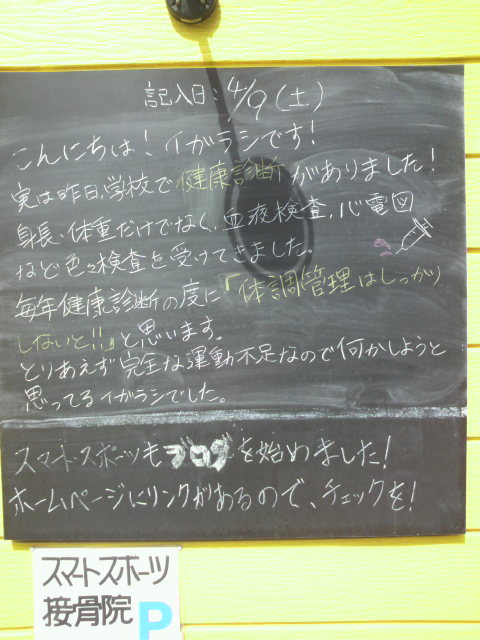 記入日：4/9（土）
こんにちは！イガラシです！
実は昨日、学校で健康診断がありました！
身長、体重だけでなく、血液検査、心電図
など色々検査を受けてきました。
毎年健康診断の度に「体調管理はしっかり
しないと!!」と思います。
とりあえず完全な運動不足なので何かしようと
思ってるイガラシでした。
スマート・スポーツもブログを始めました！
ホームページにリンクがあるので、チェックを！
スマートスポーツ
接骨院 P